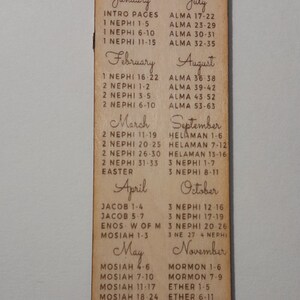 January
INTRO PAGES
1 NEPHI 1-5
1 NEPHI 6-10
1 NEPHI 11-15
February
1 NEPHI 16-22
2 NEPHI 1-2
2 NEPHI 3-5
2 NEPHI 6-10
March
2 NEPHI 11-19
2 NEPHI 20-25
2 NEPHI 26-30
2 NEPHI 31-33
EASTER
April
JACOB 1-4
JACOB 5-7
ENOS W OF M
MOSIAH 1-3
May
MOSIAH 4-6
MOSIAH 7-10
MOSIAH 11-17
MOSIAH 18-24
July
ALMA 17-22
ALMA 23-29
ALMA 30-31
ALMA 32-35
August
ALMA 36-38
ALMA 39-42
ALMA 43-52
ALMA 53-63
September
HELAMAN 1-6
HELAMAN 7-12
HELAMAN 13-16
3 NEPHI 1-7
3 NEPHI 8-11
October
3 NEPHI 12-16
3 NEPHI 17-19
3 NEPHI 20-26
3 NE 27 4 NEPHI
November
MORMON 1-6
MORMON 7-9
ETHER 1-5
ETHER 6-11